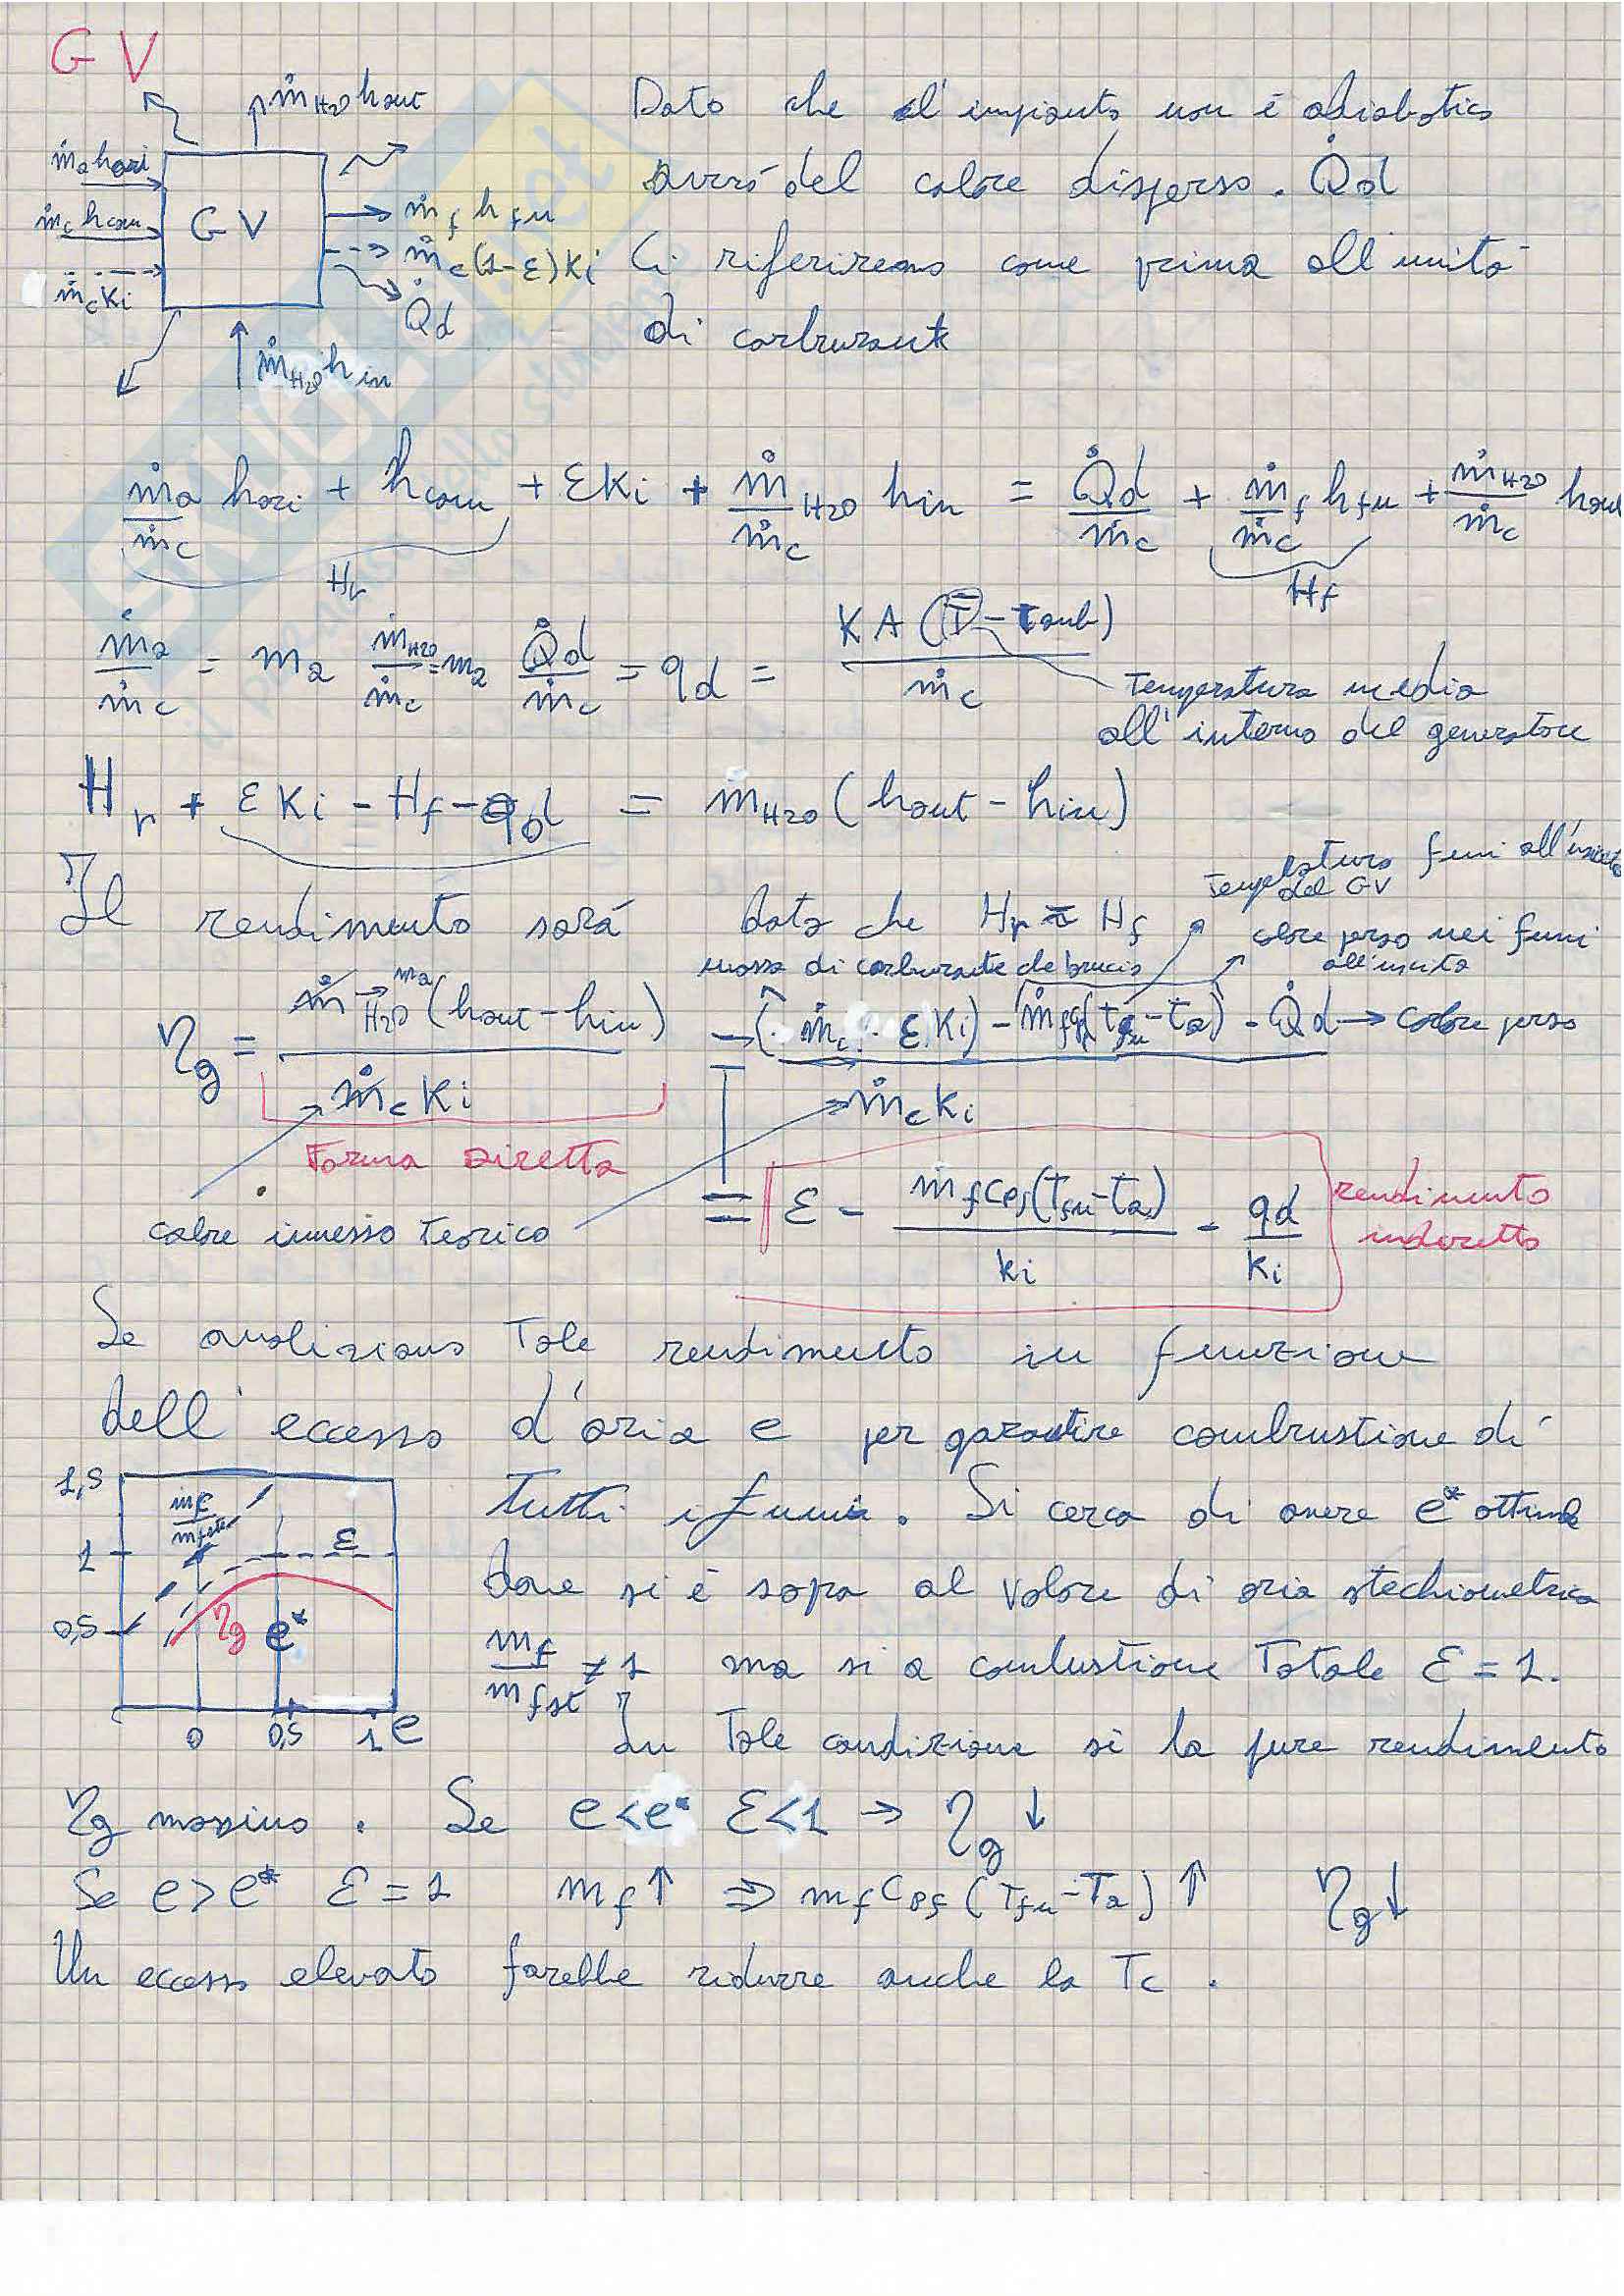 GV
ṁ_H2O hout
ṁa hari
ṁc hcom
ṁc Ki
GV
ṁf hfu
ṁc(1-ε)Ki
Q̇d
ṁ_H2O hin
Dato che l'impianto non è adiabatico
avrò del calore disperso. Q̇d
Ci riferiremo come prima all'unità
di carburante
ṁa/ṁc hari + hcom + εKi + ṁ_H2O/ṁc hin = Q̇d/ṁc + ṁf/ṁc hfu + ṁ_H2O/ṁc hout
Hr
Hf
ṁa/ṁc = ma ṁ_H2O/ṁc = ma Q̇d/ṁc = qd = KA(T̄-Tamb)/ṁc
Temperatura media
all'interno del generatore
Hr + εKi - Hf - qd = ṁ_H2O (hout - hin)
Temperatura fumi all'uscita
del GV
Il rendimento sarà dato che Hr ≈ Hf
calore perso nei fumi
all'uscita
massa di carburante che brucia
ηg = ṁ_H2O → ma (hout - hin)/ṁc Ki → (ṁc · εKi) - ṁf cpf (tfu - ta) - Q̇d/ṁc Ki → calore perso
Forma diretta
calore immesso teorico
= ε - mf cpf (Tfu - Ta)/Ki - qd/Ki
rendimento
indiretto
Se analizziamo Tale rendimento in funzione
dell'eccesso d'aria e per garantire combustione di
tutti i fumi. Si cerca di avere e* ottimale
dove si è sopra al valore di aria stechiometrica
mf/mfst ≠ 1 ma si a combustione Totale ε = 1.
In Tale condizione si ha pure rendimento
1,5
mf/mfste
1
ε
0,5
ηg
e*
0
0,5
1
e
ηg massimo. Se e<e* ε<1 → ηg ↓
Se e>e* ε=1 mf↑ ⇒ mf cpf (Tfu-Ta) ↑ ηg↓
Un eccesso elevato farebbe ridurre anche la Tc.